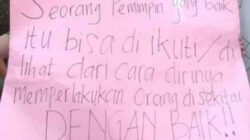 Seorang Pemimpin yang baik
Itu bisa di ikuti/di
lihat dari cara dirinya
memperlakukan Orang disekitar
DENGAN BAIK!!